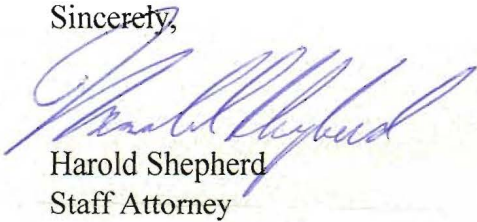 Sincerely,
Harold Shepherd
Harold Shepherd
Staff Attorney